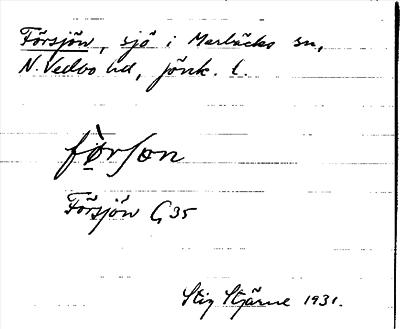 Försjön, sjö i Marbäcks sn,
N. Vedbo hd, jönk. l.
fö̀rʃɷn
Försjön G 35
Stig Stjärne 1931.